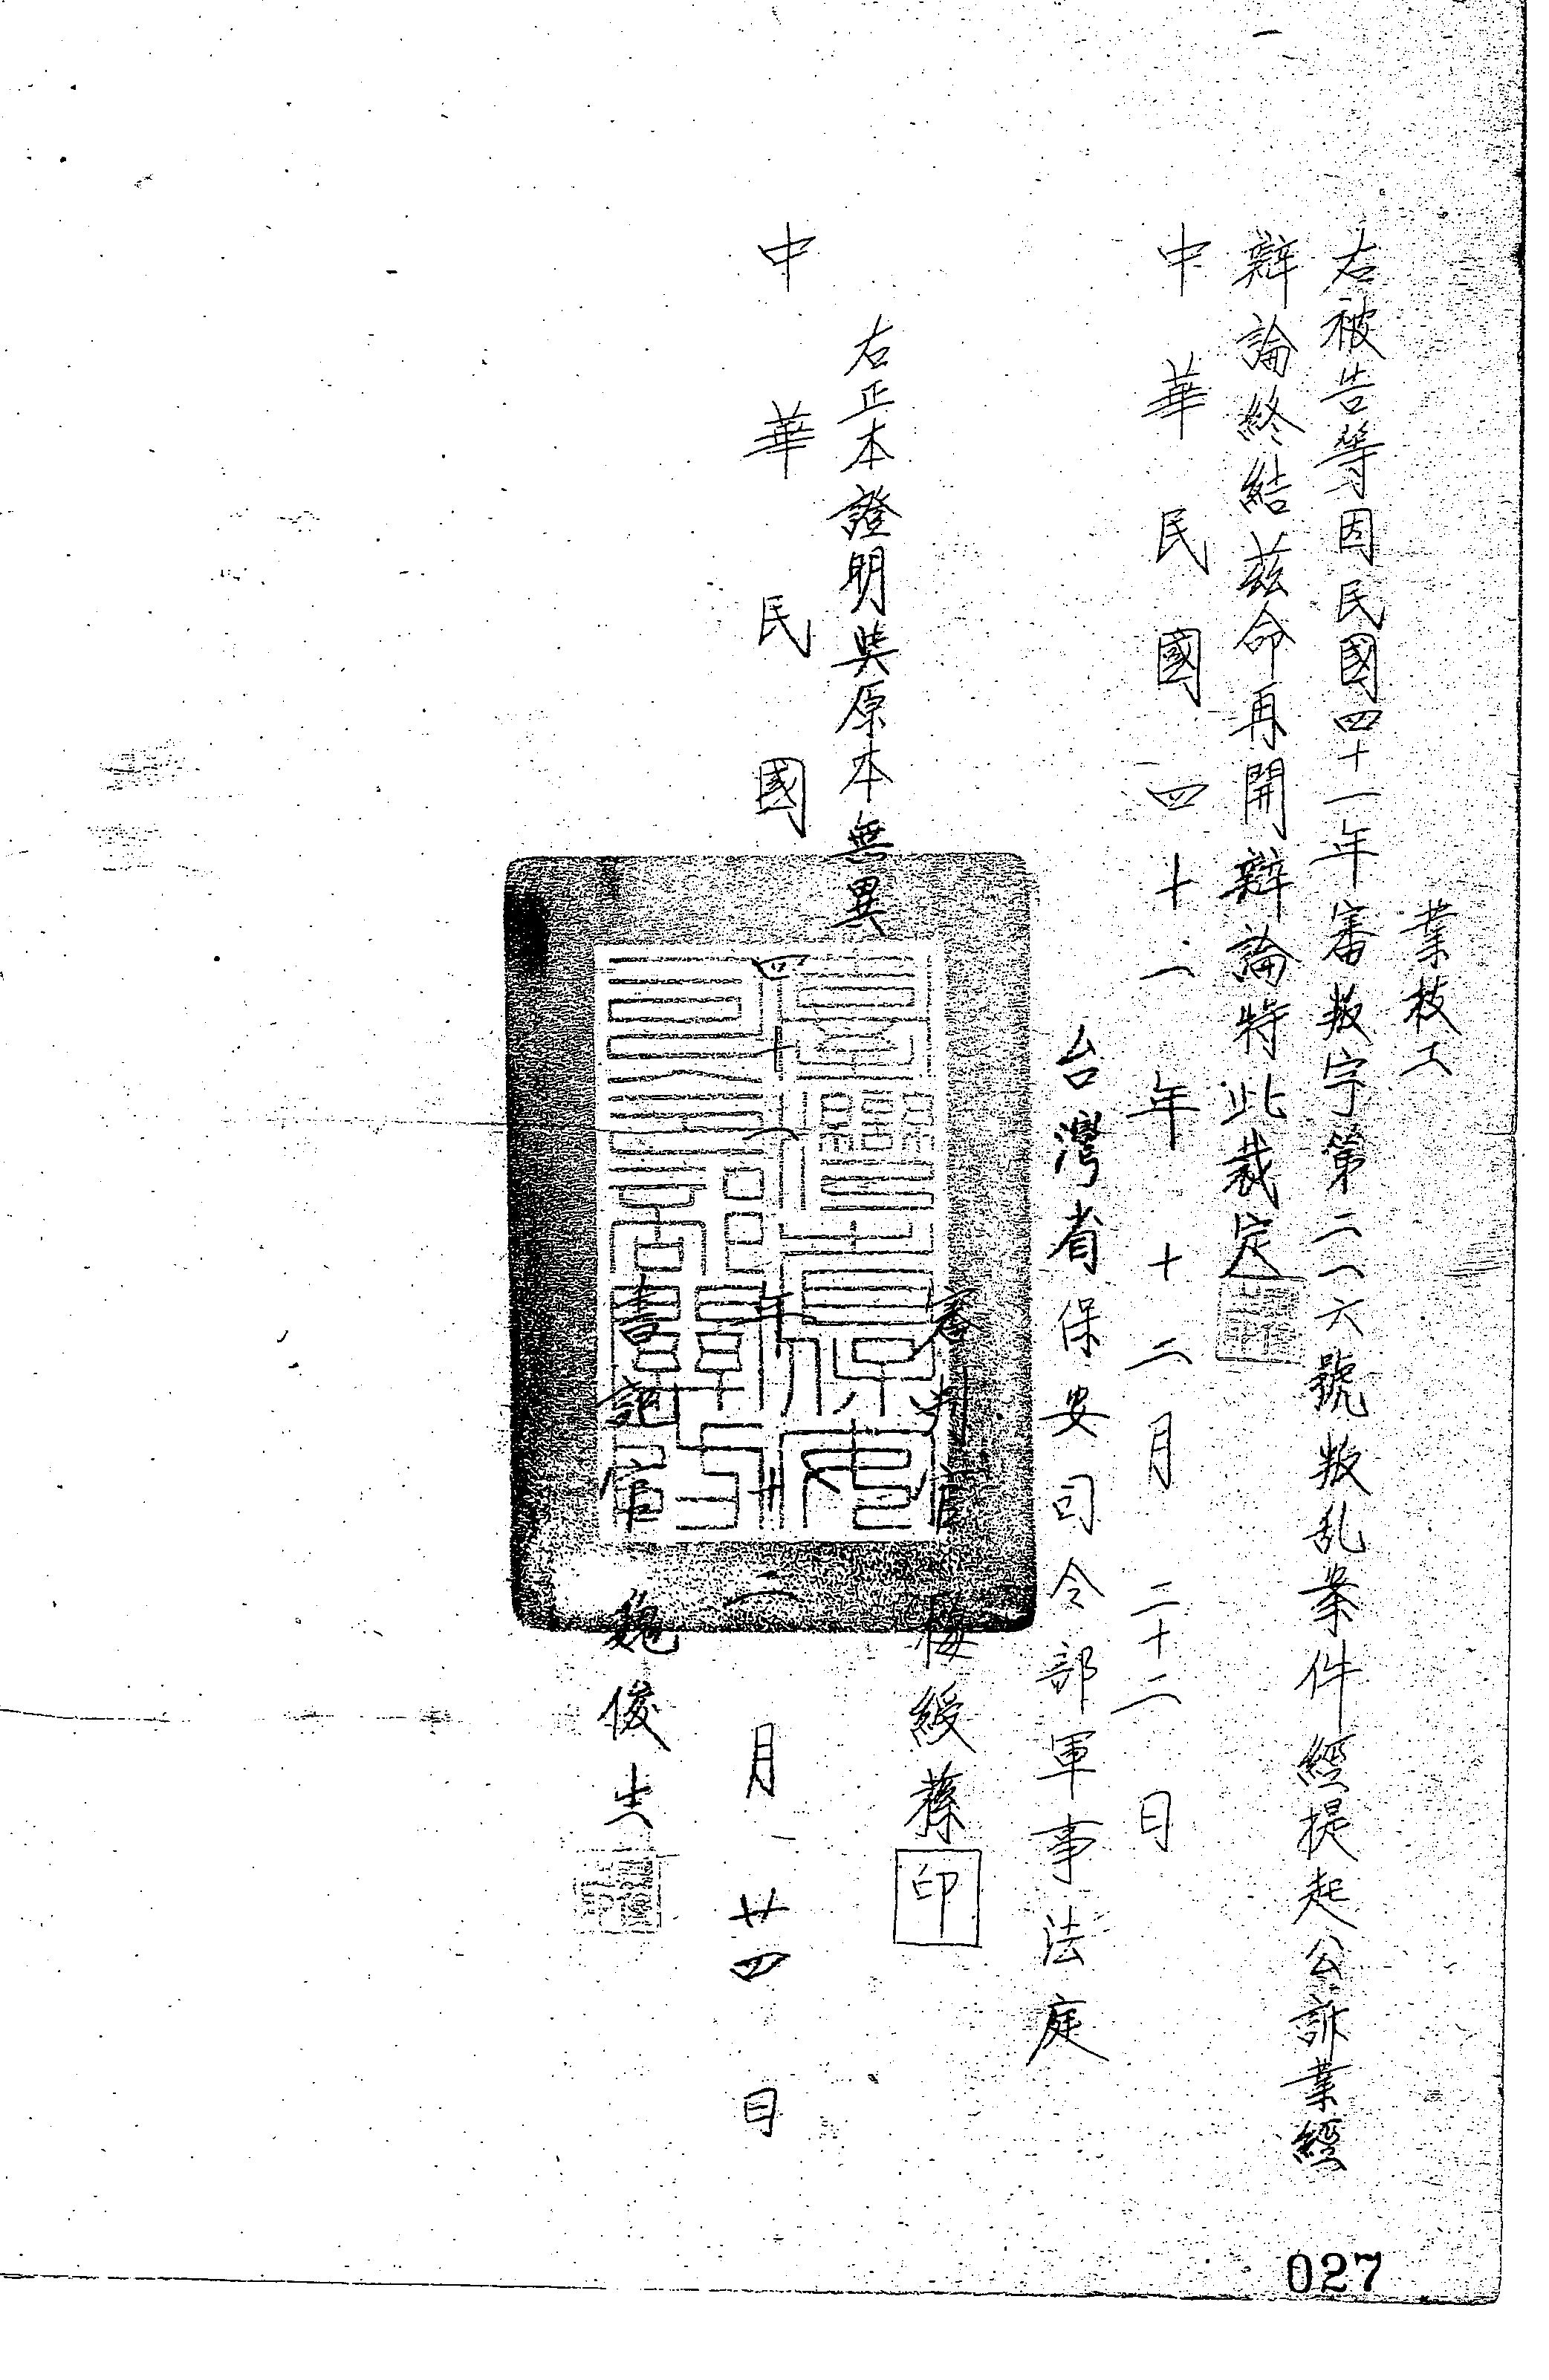 業技工
右被告等因民國四十一年審叛字第二一六號叛乱案件經提起公訴業經
辯論終結茲命再開辯論特此裁定
中華民國四十一年十二月二十二日
台灣省保安司令部軍事法庭
審判官 梅綬蓀 印
右正本證明與原本無異
中華民國四十一年十二月廿四日
書記官 魏俊生
027